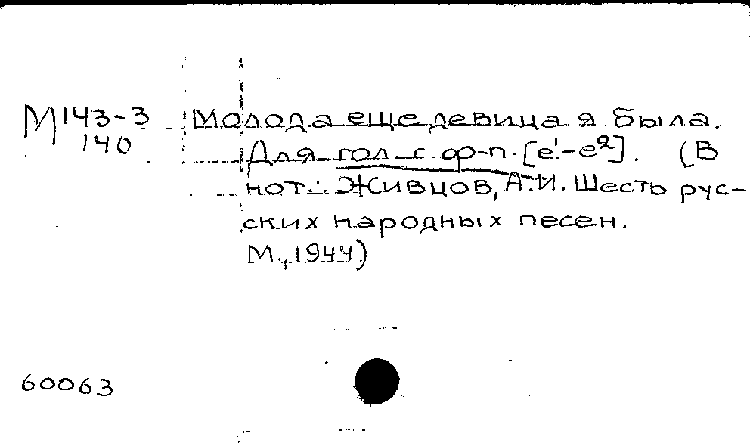 М143-3 Молода еще девица я была.
140 Для гол. с ф-п. [e¹-e²]. (В
нот.: Живцов, А.И. Шесть рус-
ских народных песен.
М., 1944)
60063